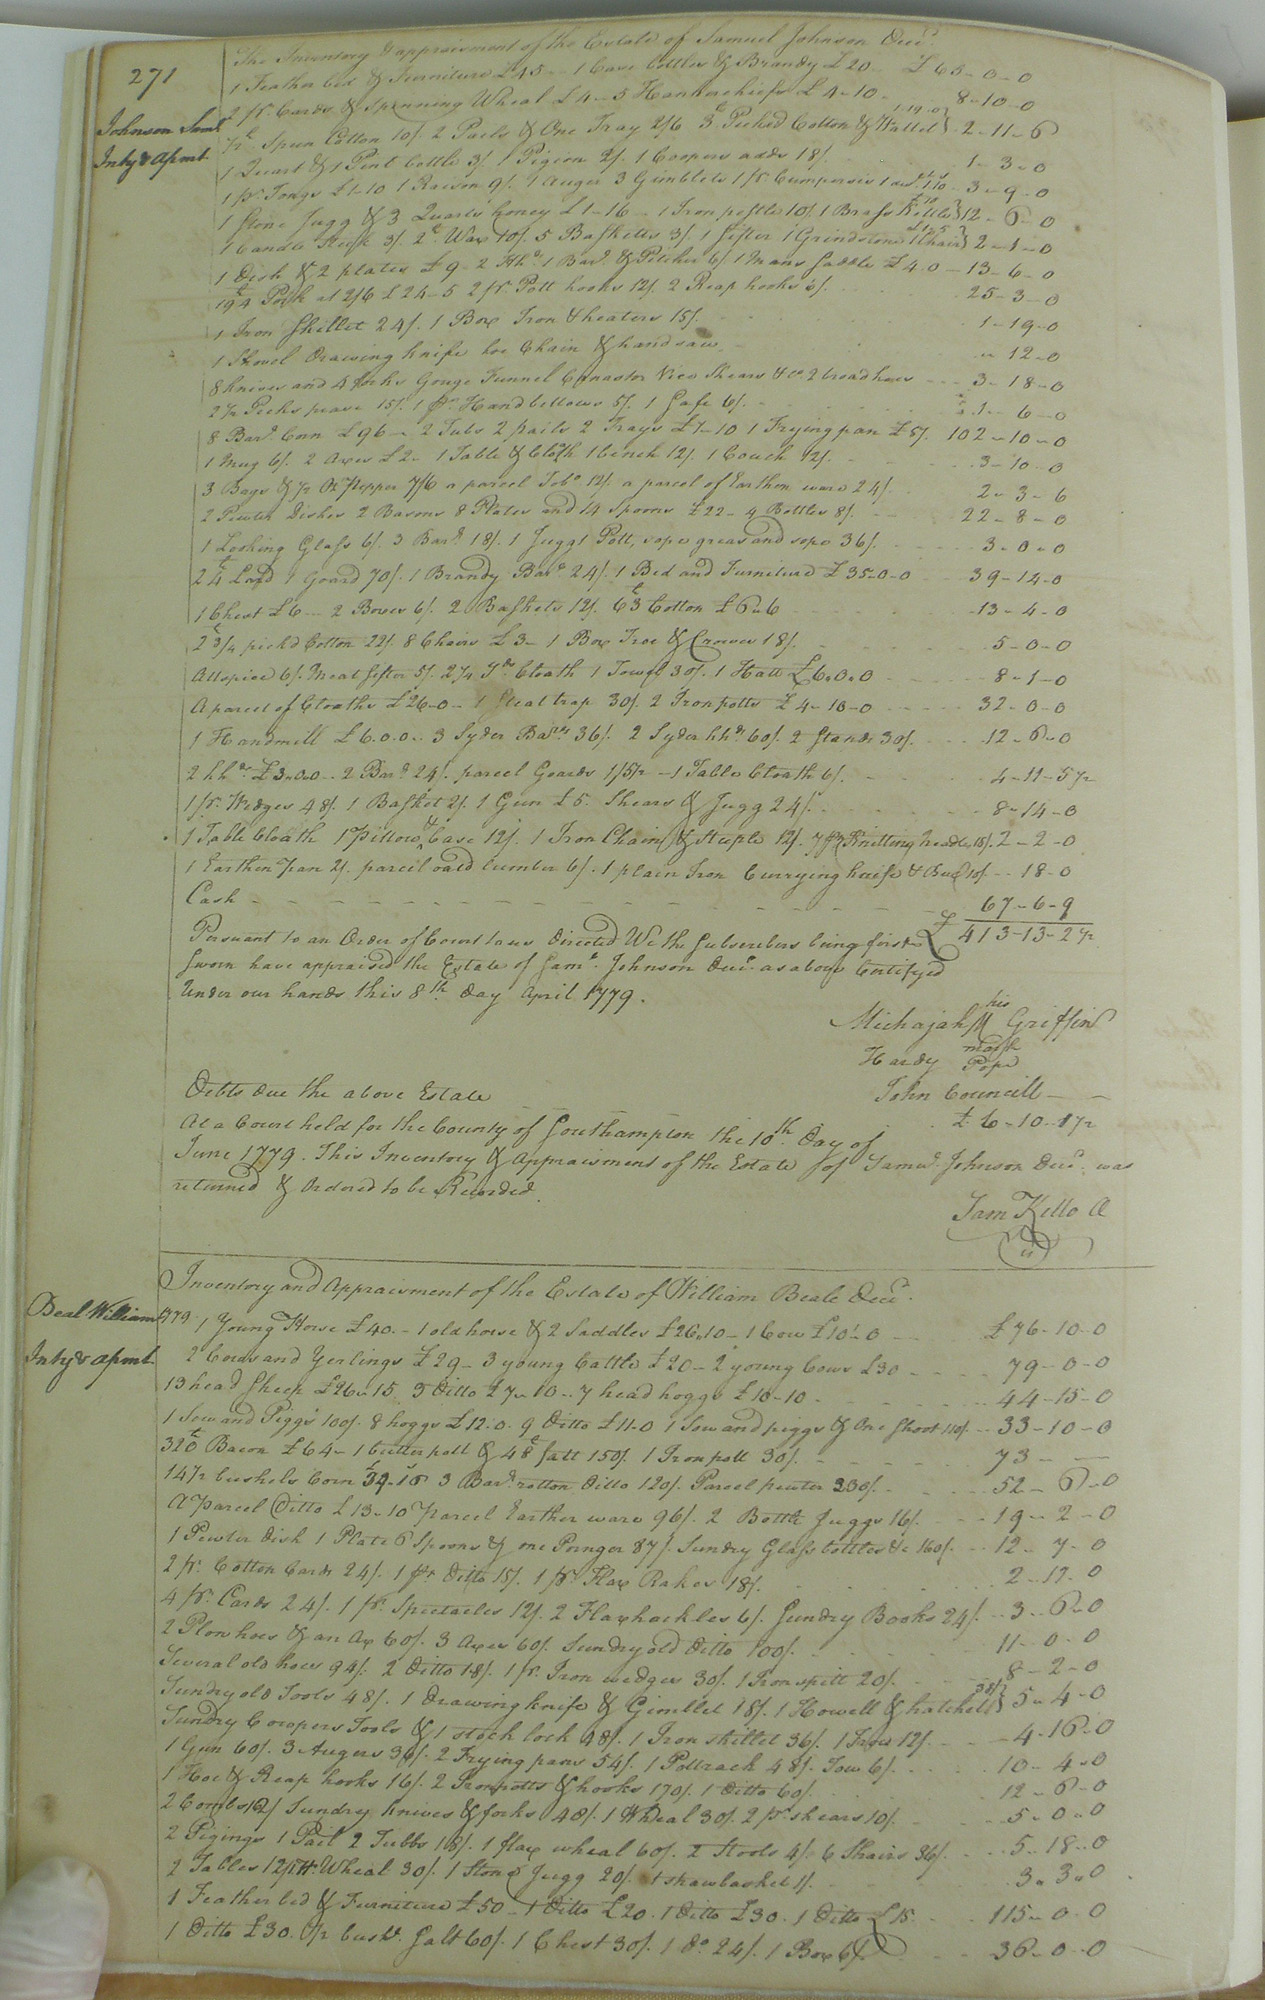 271
The Inventory & appraisment of the Estate of Samuel Johnson Decd.
Johnson Saml.
Inty & Apmt.
1 Feather bed & Furniture £45 - 1 Case bottles & Brandy £20 - £65-0-0
2 pr. Cards & Spinning Wheal £4-5 Hankerchiefs £4-10 - 8-10-0
Spun Cotton 10/. 2 Pails & One Tray 2/6 Picked Cotton & Wallet} 2-11-6
1 Quart & 1 Pint bottle 3/. 1 Pigion 2/. 1 Coopers adds 18/. 1-3-0
1 pr. Tongs £1-10 1 Raison 9/. 1 Auger 3 Gimblets 1 pr. Cumperss 3-9-0
1 Stone Jugg & 3 Quarts honey £1-16 - 1 Iron pestle 10/. 1 Brass Kettle} 12-6-0
1 Candle Stick 3/. 2 Wax 10/. 5 Basketts 3/. 1 Sifter 1 Grindstone 1 Chair} 2-1-0
1 Dish & 2 plates £9-2 Hhds 1 Barl. & Pitcher 6/. 1 Mans Saddle £4-0 - 13-6-0
194 Pork at 2/6 £24-5 2 pr. Pott hooks 12/. 2 Reap hooks 6/. 25-3-0
1 Iron Skillet 24/. 1 Box Iron & heaters 15/. 1-19-0
1 Shovel Drawing knife hoe Chain & hand saw " 12-0
8 knives and 4 forks Gouge Funnel Canaster Vice Shears &c 2 broad hoes 3-18-0
2 1/2 Pecks pease 15/. 1 pr. Hand bellows 5/. 1 Safe 6/. 1-6-0
8 Barl. Corn £96 - 2 Tubs 2 pails 2 Trays £1-10 1 Frying pan £5/. 102-10-0
1 Mug 6/. 2 Axes £2 - 1 Table & Cloth 1 bench 12/. 1 Couch 12/. 3-10-0
3 Bags & 1/2 Oz Pepper 7/6 a parcel Tobo. 12/. a parcel of Earthen ware 24/. 2-3-6
2 Pewter Dishes 2 Basons 8 Plates and 14 Spoons £22-4 Bottles 8/. 22-8-0
1 Looking Glass 6/. 3 Barl. 18/. 1 Jugg 1 Pott, sope greas and sope 36/. 3-0-0
24 Lard 1 Goard 70/. 1 Brandy Barl. 24/. 1 Bed and Furniture £35-0-0 39-14-0
1 Chest £6 - 2 Boxes 6/. 2 Baskets 12/. 63 Cotton £6"6 13-4-0
2 3/4 pickd Cotton 22/. 8 Chairs £3 - 1 Box Tree & Crowes 18/. 5-0-0
Allspice 6/. Meal sifter 5/. 2 1/4 Yds Cloath 1 Towel 30/. 1 Hatt £6.0.0 8-1-0
A parcel of Cloaths £26-0 - 1 Steal trap 30/. 2 Iron potts £4-10-0 32-0-0
1 Handmill £6.0.0 - 3 Syder Barls 36/. 2 Syder hhds 60/. 2 Stands 30/. 12-6-0
2 hhds £3.0.0 - 2 Barl. 24/. parcel Goards 1/5 1/2 - 1 Table Cloath 6/. 4-11-5 1/2
1 pr. Wedges 48/. 1 Basket 2/. 1 Gun £5. Shears & Jugg 24/. 8-14-0
1 Table Cloath 1 Pillow Case 12/. 1 Iron Chain & Steeple 12/. 7 Knitting headle 18/. 2-2-0
1 Earthen Pan 2/. parcil oald lumber 6/. 1 plain Iron Currying knife & 10/. 18-0
Cash 67-6-9
£ 413-13-2 1/2
Persuant to an Order of Court to us Directed We the Subscribers being first
Sworn have appraised the Estate of Saml. Johnson Decd. as above Certifyed
Under our hands this 8th. day April 1779.
Michajah his M mark Griffin
Hardy Pope
John Councill
Debts Due the above Estate £6-10-1 1/2
At a Court held for the County of Southampton the 10th. Day of
June 1779. This Inventory & Appraisment of the Estate of Samul. Johnson Decd. was
returned & Ordered to be Recorded.
Sam Kello Cl
Inventory and Appraisment of the Estate of William Beale Decd.
Beal William
Inty & apmt.
1779 1 Young Horse £40. - 1 old horse & 2 Saddles £26.10 - 1 Cow £10-0 £76-10-0
2 Cows and Yerlings £29 - 3 young Cattle £20 - 2 young Cows £30 79-0-0
13 head Sheep £26-15 3 Ditto £7-10 - 7 head hoggs £10-10 44-15-0
1 Sow and Piggs 100/. 8 hoggs £12.0. 9 Ditto £11-0 1 Sow and piggs & one Shoot 110/. 33-10-0
320 Bacon £64 - 1 butter pott & 48 Salt 150/. 1 Iron pott 30/. 73
14 1/2 bushels Corn 3 Barl. rotton Ditto 120/. Parcel pewter 230/. 52-6-0
A Parcel Ditto £13-10 Parcel Earther ware 96/. 2 Bottle Juggs 16/. 19-2-0
1 Pewter Dish 1 Plate 6 Spoons & one Poringer 87/. Sundry Glass bottles &c 160/. 12-7-0
2 pr. Cotton Cards 24/. 1 pr. Ditto 15/. 1 pr. Flax Rakes 18/. 2-17-0
4 pr. Cards 24/. 1 pr. Spectacles 12/. 2 Flax hackles 6/. Sundry Books 24/. 3-6-0
2 Plow hoes & an Ax 60/. 3 Axes 60/. Sundry old Ditto 100/. 11-0-0
Several old hoes 94/. 2 Ditto 18/. 1 pr. Iron wedges 30/. 1 Iron spitt 20/. 8-2-0
Sundry old Tools 48/. 1 Drawing knife & Gimblet 18/. 1 Howell & hatchett 38/} 5-4-0
Sundry Coopers Tools & 1 stock lock 48/. 1 Iron skillet 36/. 1 Froe 12/. 4-16-0
1 Gun 60/. 3 Augers 36/. 2 Frying pans 54/. 1 Pottrack 48/. Tow 6/. 10-4-0
1 Hoe & Reap hooks 16/. 2 Iron potts & hooks 170/. 1 Ditto 60/. 12-6-0
2 Combs 12/ Sundry knives & forks 48/. 1 Wheal 30/. 2 pr. shears 10/. 5-0-0
2 Pigings 1 Pail 2 Tubbs 18/. 1 flax wheal 60/. 2 Stools 4/. 6 Shairs 36/. 5-18-0
2 Tables 12/. 1 Wheal 30/. 1 Stone Jugg 20/. 1 straw basket 1/. 3-3-0
1 Feather bed & Furniture £50 - 1 Ditto £20. 1 Ditto £30. 1 Ditto £15. 115-0-0
1 Ditto £30. 1/2 bushl. Salt 60/. 1 Chest 30/. 1 Do. 24/. 1 Box 6/. 36-0-0